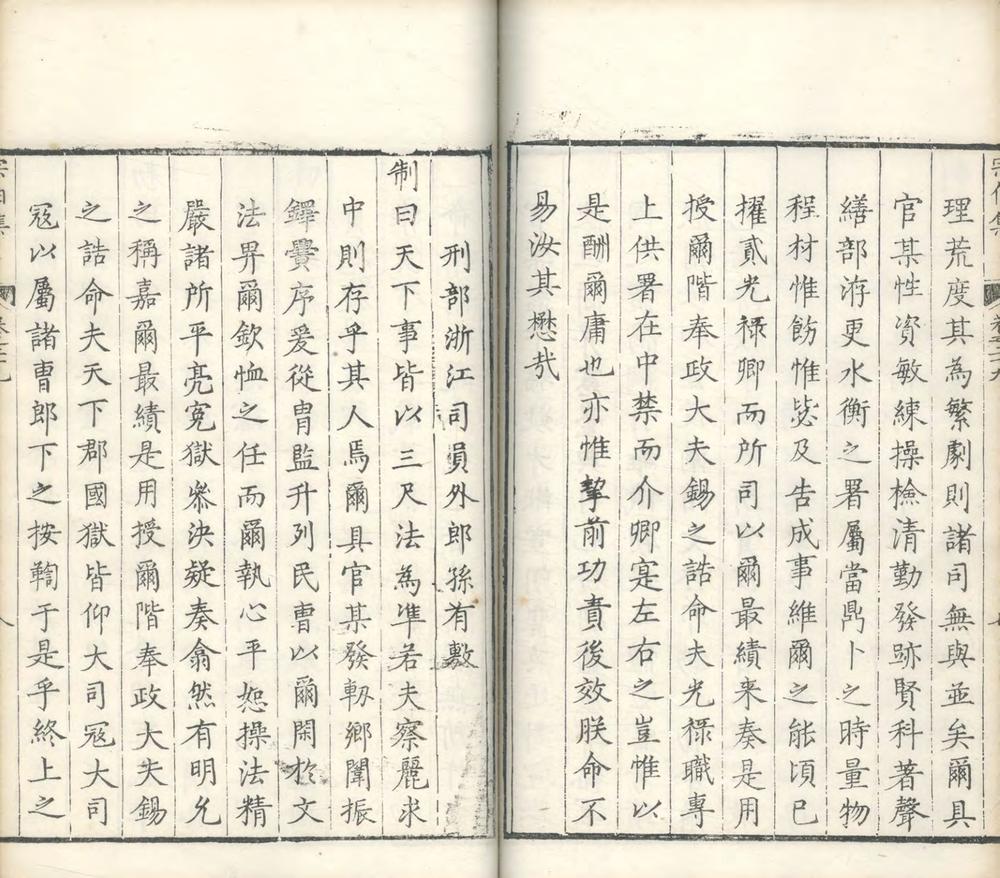 宗伯集
卷之二十九
理荒度其為繁劇則諸司無與並矣爾具
官某性資敏練操檢清勤發跡賢科著聲
繕部洊更水衡之署屬當鼎卜之時量物
程材惟飭惟毖及告成事維爾之能頃已
擢貳光祿卿而所司以爾最績來奏是用
授爾階奉政大夫錫之誥命夫光祿職專
上供署在中禁而介卿寔左右之豈惟以
是酬爾庸也亦惟摯前功責後效朕命不
易汝其懋哉
刑部浙江司員外郎孫有敷
制曰天下事皆以三尺法為準若夫察麗求
中則存乎其人焉爾具官某發軔鄉闈振
鐸黌序爰從胄監升列民曹以爾閑於文
法畀爾欽恤之任而爾執心平恕操法精
嚴諸所平亮寃獄叅決疑奏翕然有明允
之稱嘉爾最績是用授爾階奉政大夫錫
之誥命夫天下郡國獄皆仰大司寇大司
寇以屬諸曹郎下之按鞫于是乎終上之
八